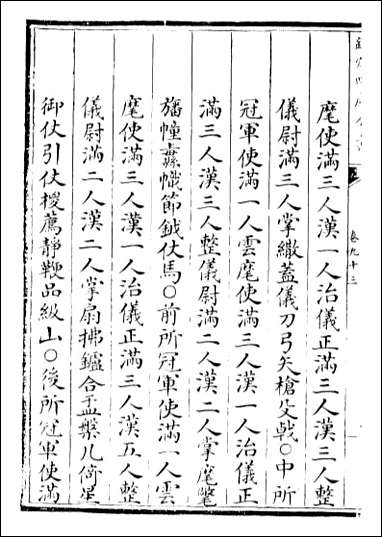 卷九十三
麾使滿三人漢一人治儀正滿三人漢三人整
儀尉滿三人掌繖蓋儀刀弓矢槍殳戟○中所
冠軍使滿一人雲麾使滿三人漢一人治儀正
滿三人漢三人整儀尉滿二人漢二人掌麾氅
旛幢纛幟節鉞仗馬○前所冠軍使滿一人雲
麾使滿三人漢一人治儀正滿三人漢五人整
儀尉滿二人漢二人掌扇拂鑪合盂槃几倚星
御仗引仗椶薦靜鞭品級山○後所冠軍使滿